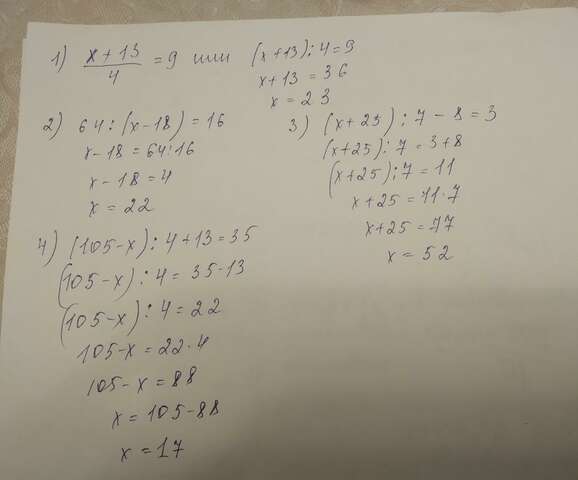 1) x + 13 / 4 = 9 или (x+13) : 4 = 9
x + 13 = 36
x = 23
2) 64 : (x-18) = 16
x - 18 = 64 : 16
x - 18 = 4
x = 22
3) (x+25) : 7 - 8 = 3
(x+25) : 7 = 3+8
(x+25) : 7 = 11
x+25 = 11·7
x+25 = 77
x = 52
4) (105-x) : 4 + 13 = 35
(105-x) : 4 = 35-13
(105-x) : 4 = 22
105-x = 22·4
105-x = 88
x = 105-88
x = 17